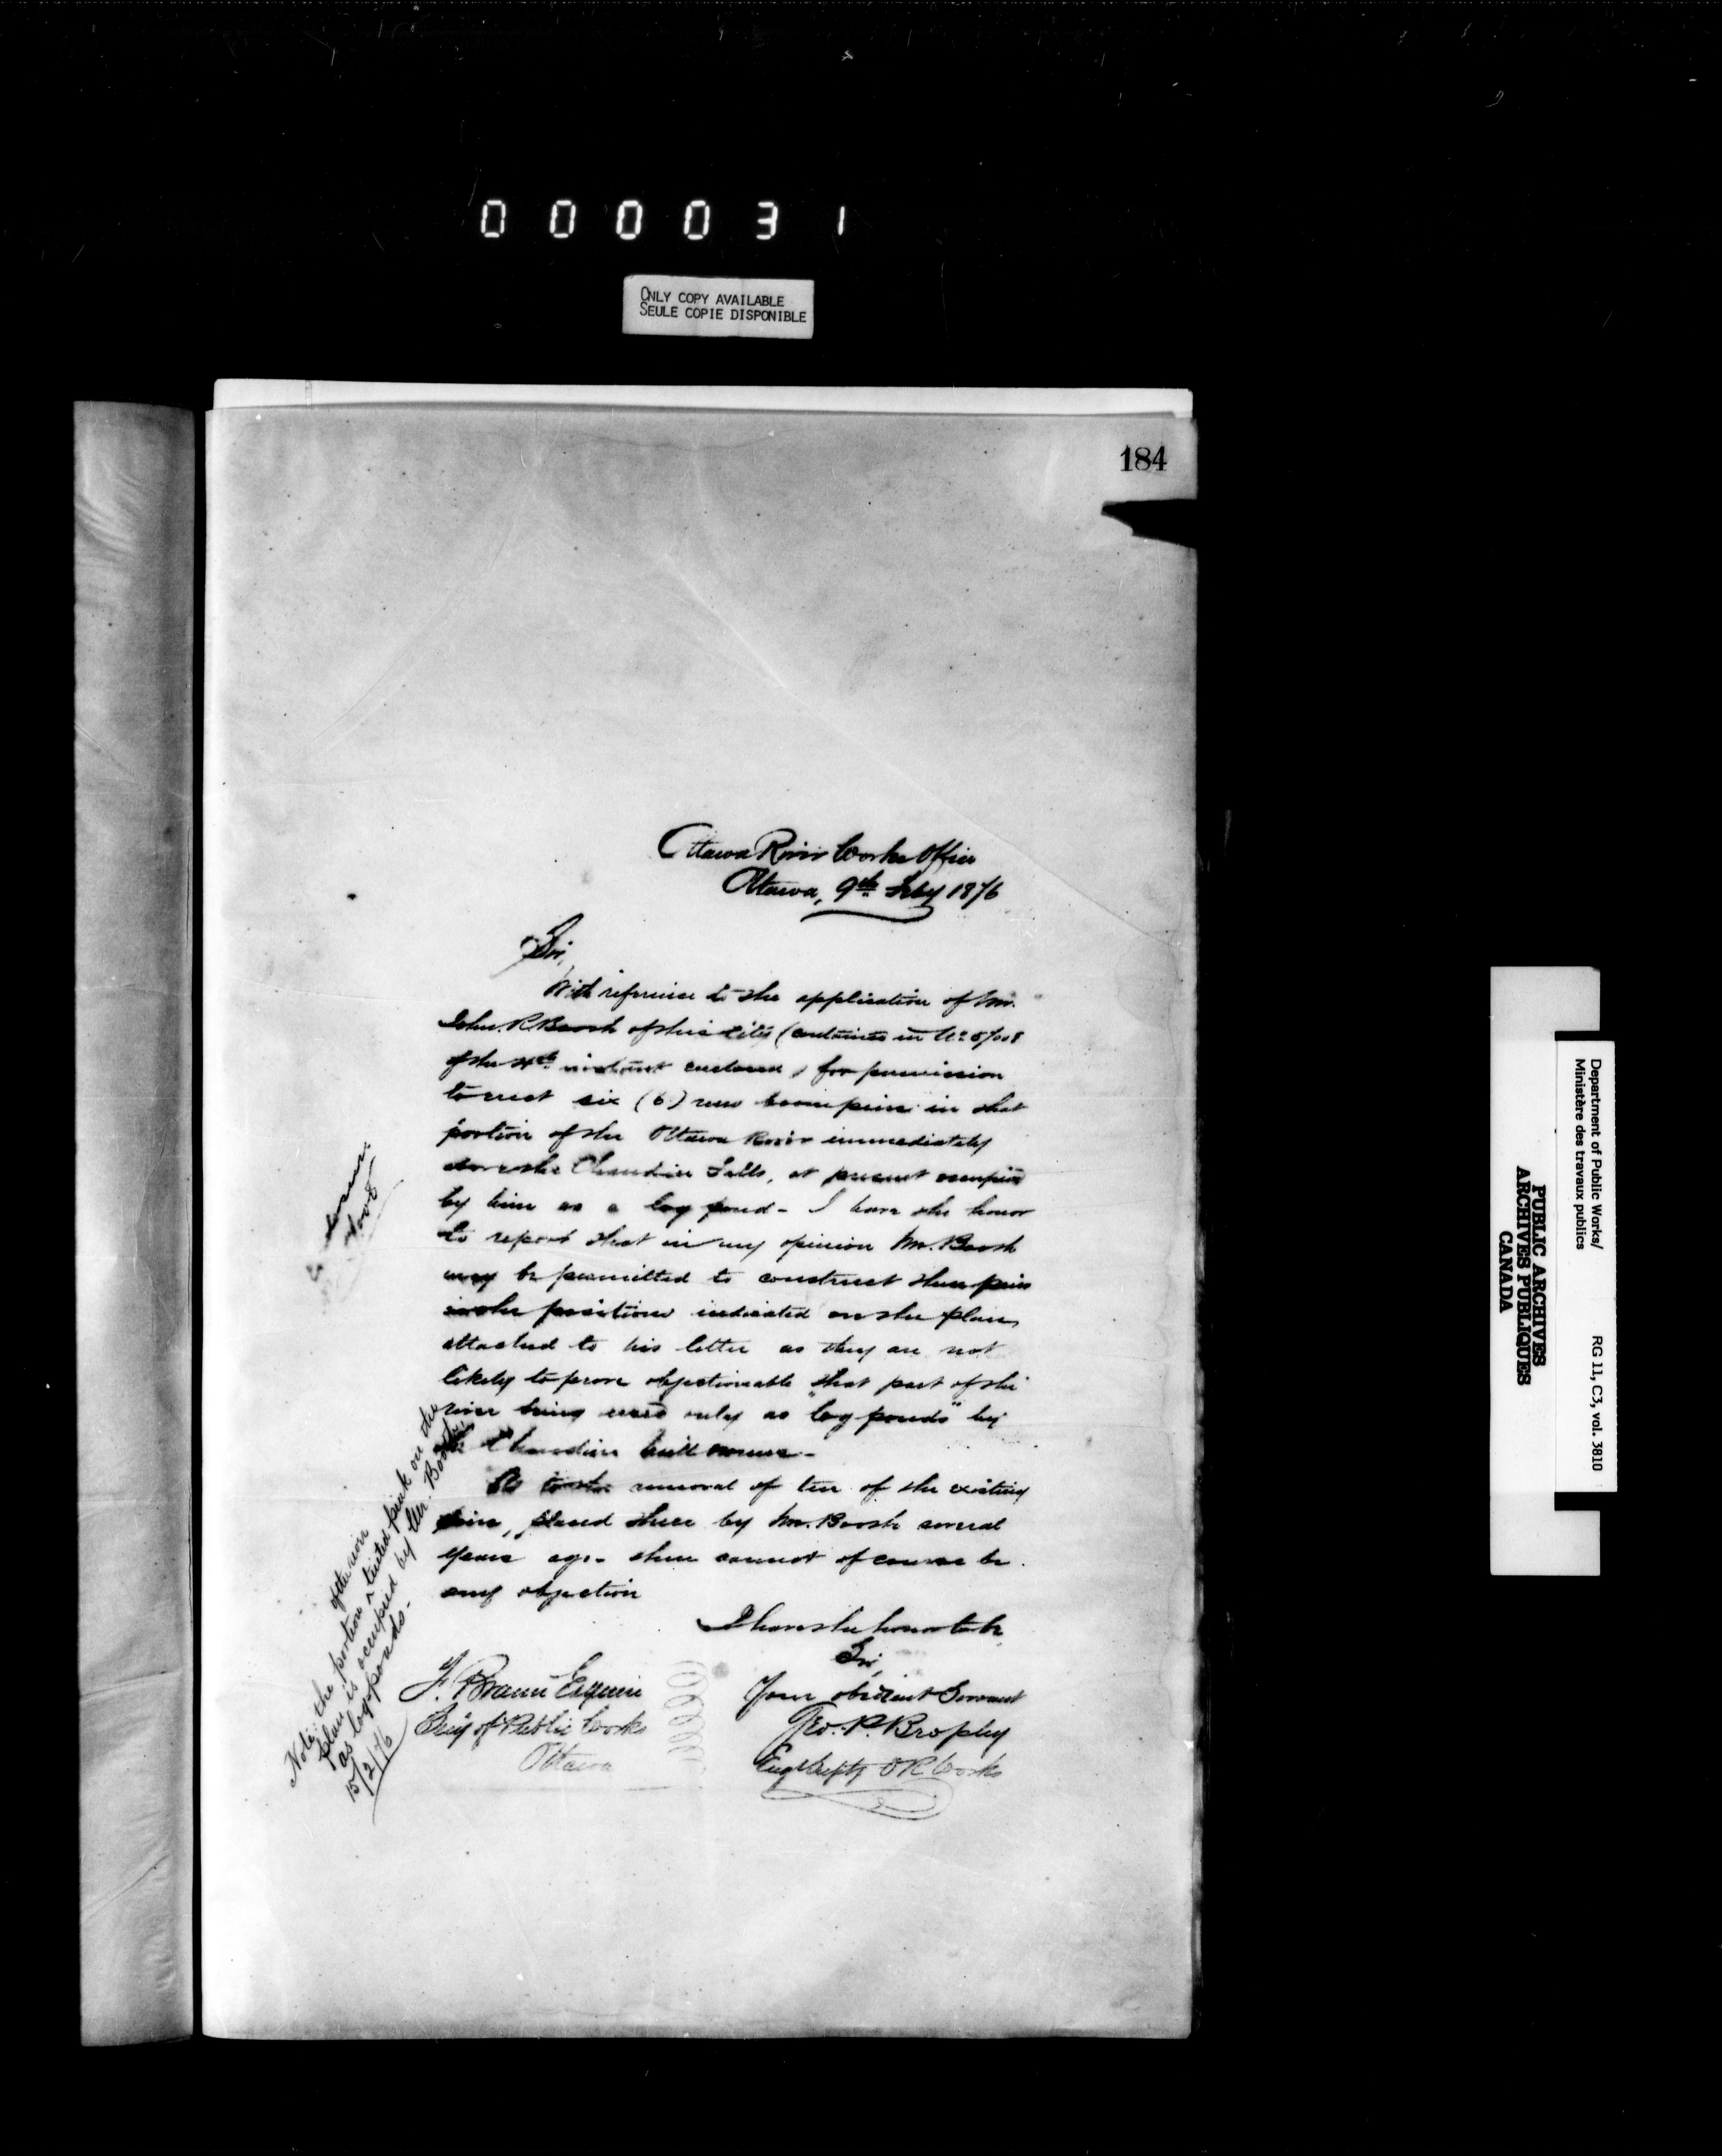 000031
ONLY COPY AVAILABLE
SEULE COPIE DISPONIBLE
184
Ottawa River Works Office
Ottawa, 9th Feby 1876
Sir,
With reference to the application of Mr.
John. R. Booth of this City (contained in No
of the instant enclosed) for permission
to erect six (6) new boom piers in that
portion of the Ottawa River immediately
above the Chaudiere Falls, at present occupied
by him as a log pond - I have the honor
to report that in my opinion Mr. Booth
may be permitted to construct these piers
in the positions indicated on the plan,
attached to his letter as they are not
likely to prove objectionable that part of the
river being used only as "log ponds" by
the Chaudiere mill owners -
As to the removal of ten of the existing
piers, placed there by Mr. Booth several
years ago - there cannot of course be
any objection
I have the honor to be
Sir,
Your obedient Servant
Geo. P. Brophy
Eng & Supt O R Works
F. Braun Esquire
Secy of Public Works
Ottawa
Note: the portion ^ of the river tinted pink on the
plan is occupied by Mr. Booth
as log-ponds.
15/2/76
Department of Public Works/
Ministère des travaux publics
RG 11, C3, vol. 3810
PUBLIC ARCHIVES
ARCHIVES PUBLIQUES
CANADA